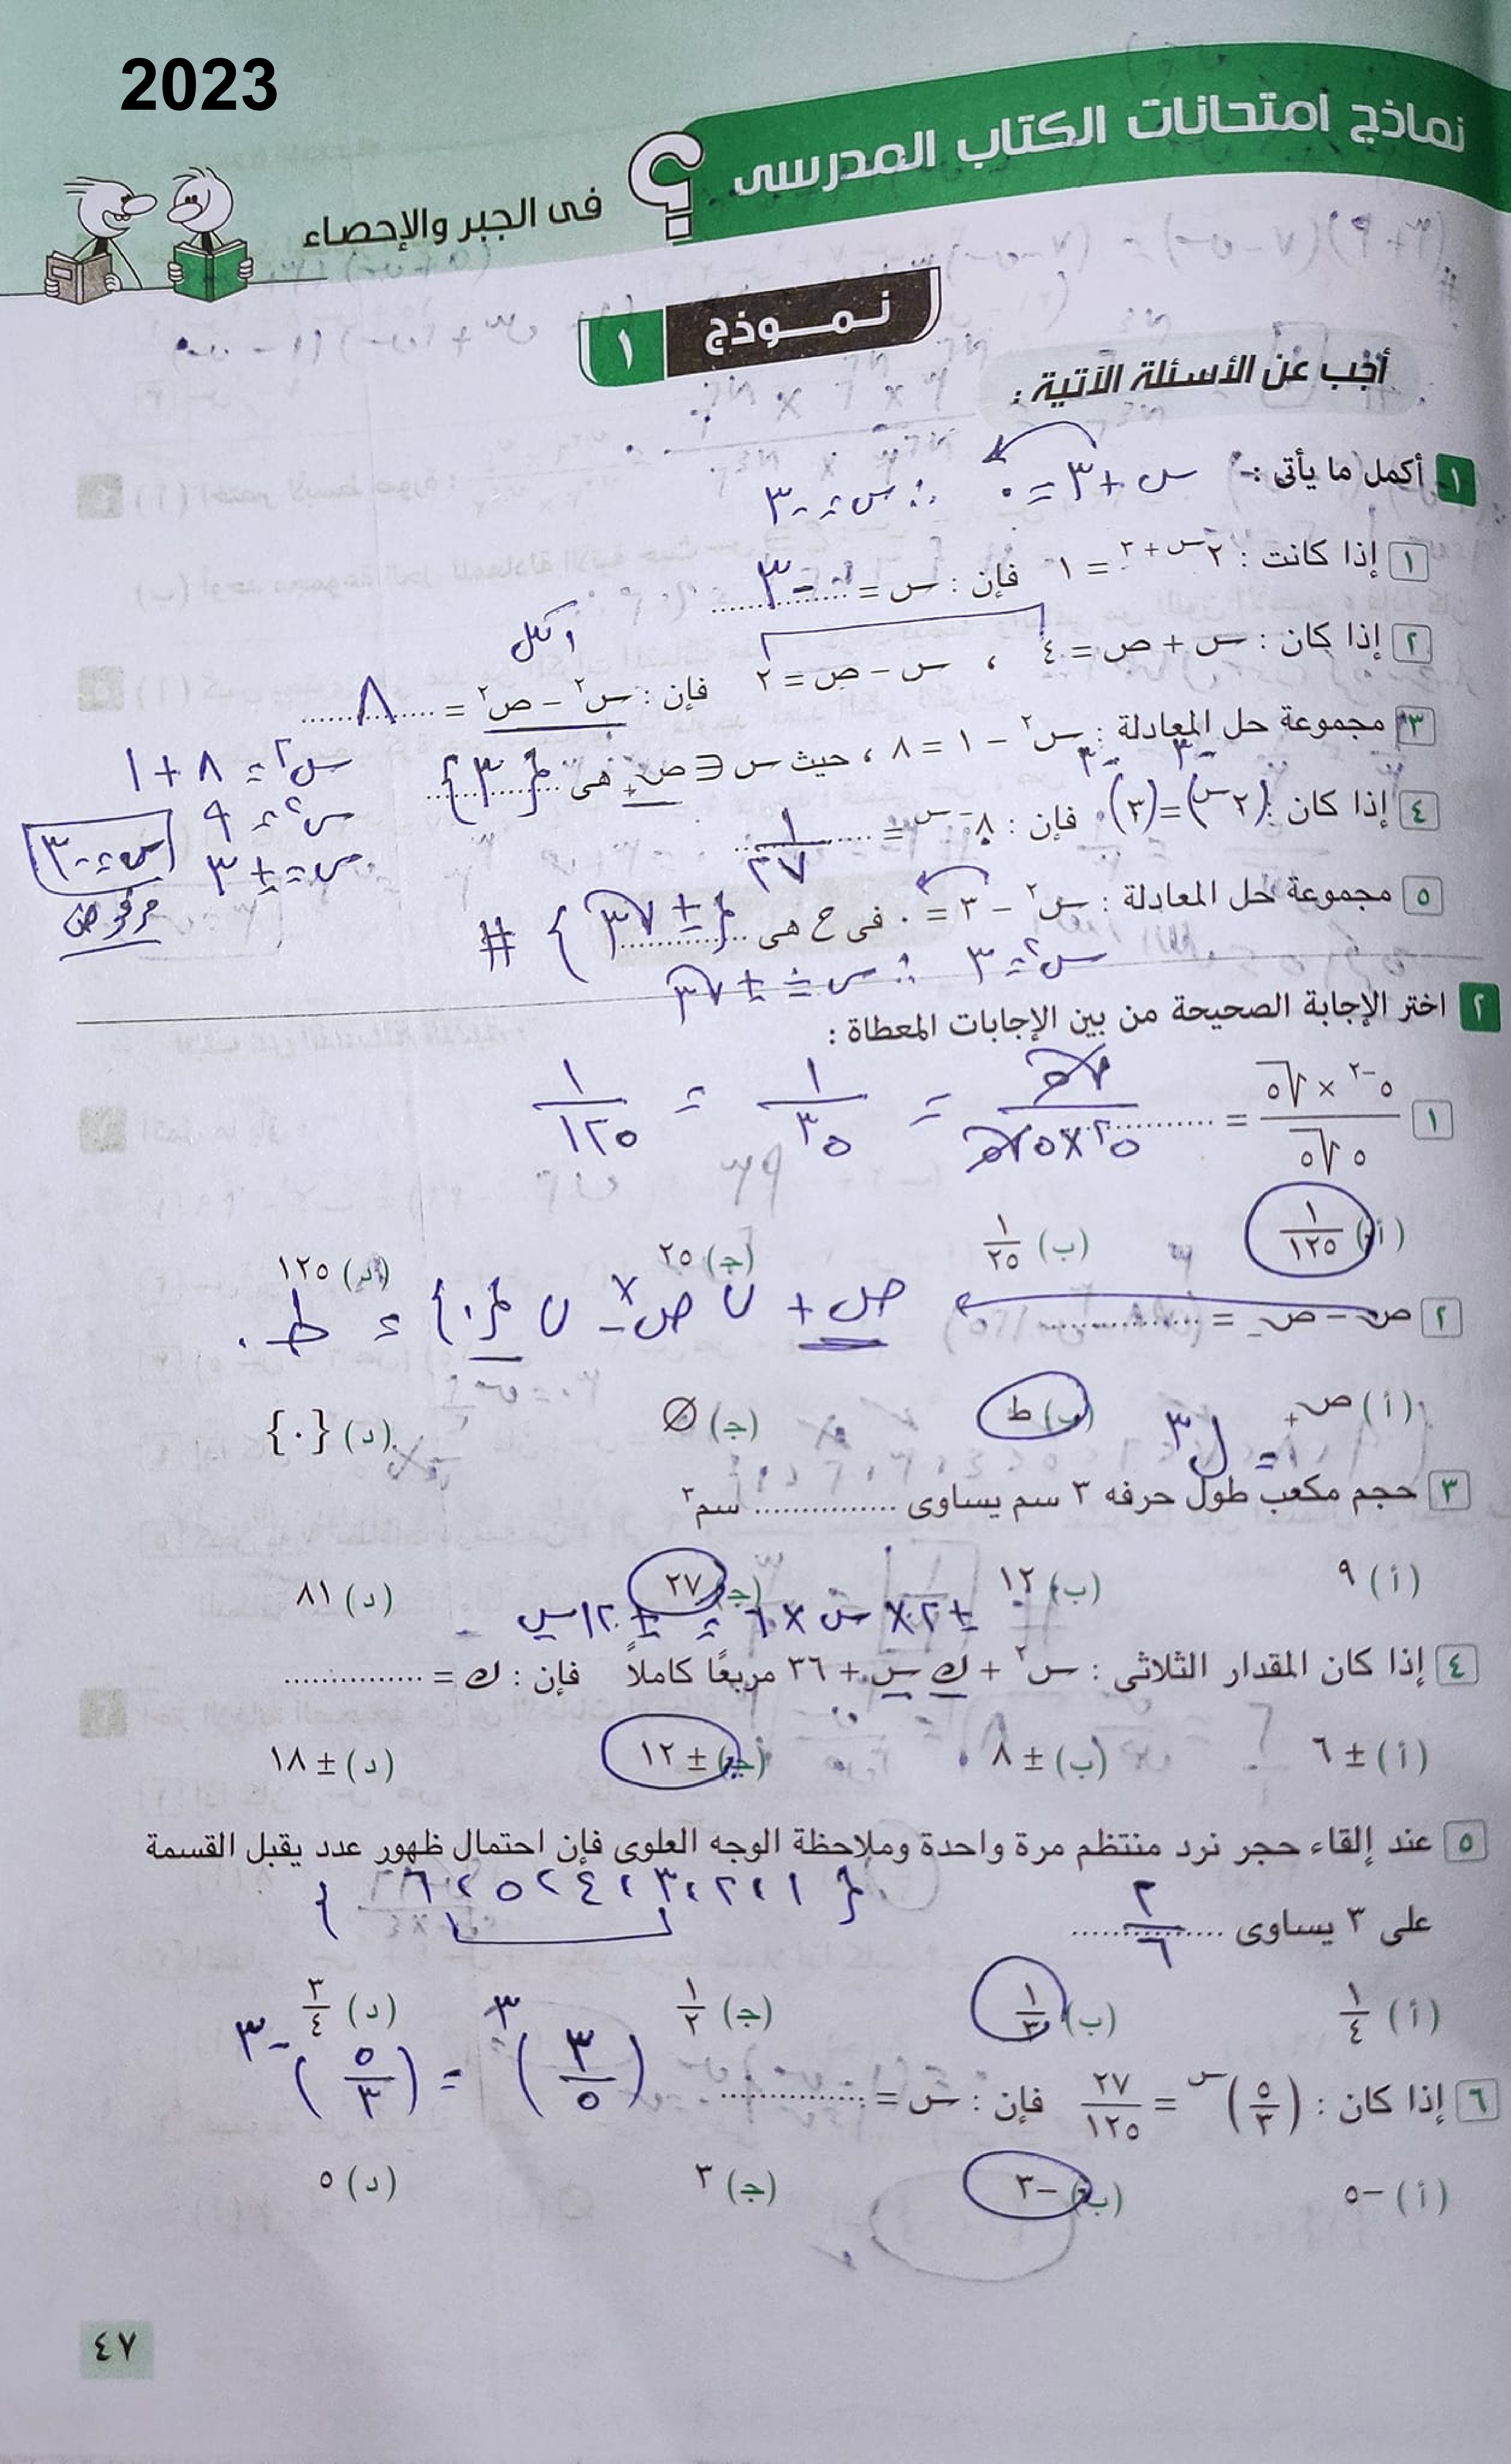 2023
نماذج امتحانات الكتاب المدرسى
فى الجبر والإحصاء
نمـــوذج ١
أجب عن الأسئلة الآتية :
١ أكمل ما يأتى :
س + ٣ = ٠ ∴ س = -٣
١ إذا كانت : ٢^(س + ٣) = ١ فإن : س = -٣
٢ إذا كان : س + ص = ٤ ، س - ص = ٢ فإن : س٢ - ص٢ = ٨
٣ مجموعة حل المعادلة : س٢ - ١ = ٨ ، حيث س ∈ ص+ هى {٣}
س٢ = ٨ + ١
س٢ = ٩
س = ± ٣
س = -٣
مرفوض
٤ إذا كان : (٢^س)^-٣ = (٣)^-٣ فإن : ٨^-س = ١/٢٧
٥ مجموعة حل المعادلة : س٢ - ٣ = ٠ فى ح هى {± √٣} #
س٢ = ٣ ∴ س = ± √٣
٢ اختر الإجابة الصحيحة من بين الإجابات المعطاة :
١ (٥^-٢ × √٥) / (٥ √٥) = √٥ / (٢٥ × ٥√٥) = ١/٥^٣ = ١/١٢٥
(أ) ١/١٢٥ (ب) ١/٢٥ (جـ) ٢٥ (د) ١٢٥
٢ ص - ص- = ص+ ∪ ص- - ∪ {٠} = ط
(أ) ص+ (ب) ط (جـ) ∅ (د) {٠}
= ل٣
٣ حجم مكعب طول حرفه ٣ سم يساوى ............... سم٣
(أ) ٩ (ب) ١٢ (جـ) ٢٧ (د) ٨١
± ٢ × س × ٦ = ± ١٢ س
٤ إذا كان المقدار الثلاثى : س٢ + ك س + ٣٦ مربعًا كاملاً فإن : ك = ...............
(أ) ± ٦ (ب) ± ٨ (جـ) ± ١٢ (د) ± ١٨
٥ عند إلقاء حجر نرد منتظم مرة واحدة وملاحظة الوجه العلوى فإن احتمال ظهور عدد يقبل القسمة
على ٣ يساوى ٢/٦ {١، ٢، ٣، ٤، ٥، ٦}
(أ) ١/٤ (ب) ١/٣ (جـ) ١/٢ (د) ٣/٤
٦ إذا كان : (٥/٣)^س = ٢٧/١٢٥ فإن : س = ............... (٣/٥)^٣ = (٥/٣)^-٣
(أ) -٥ (ب) -٣ (جـ) ٣ (د) ٥
٤٧